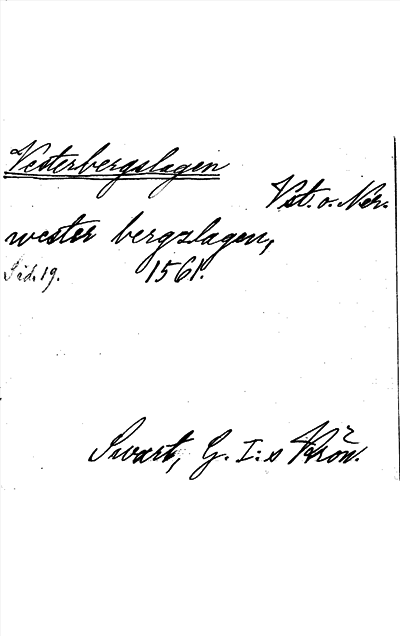 Vesterbergslagen
Vst. o. När.
wester bergzlagen,
Sid. 19. 1561.
Swart, G. I:s Krön.